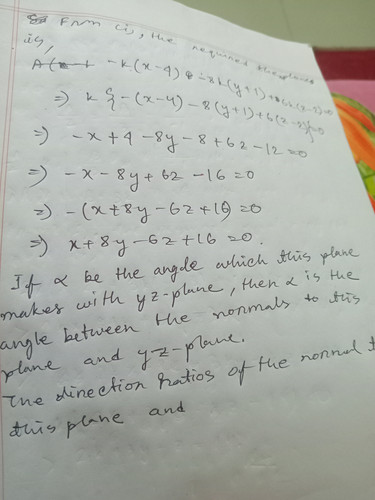 From (i), the required the plane
is,
A( -k(x-4) -8k(y+1)+6k(z-2)=0
=) k{-(x-4)-8(y+1)+6(z-2)}=0
=) -x+4-8y-8+6z-12=0
=) -x-8y+6z-16=0
=) -(x+8y-6z+16)=0
=) x+8y-6z+16=0.
If α be the angle which this plane
makes with yz-plane, then α is the
angle between the normals to this
plane and yz-plane.
The direction ratios of the normal
this plane and